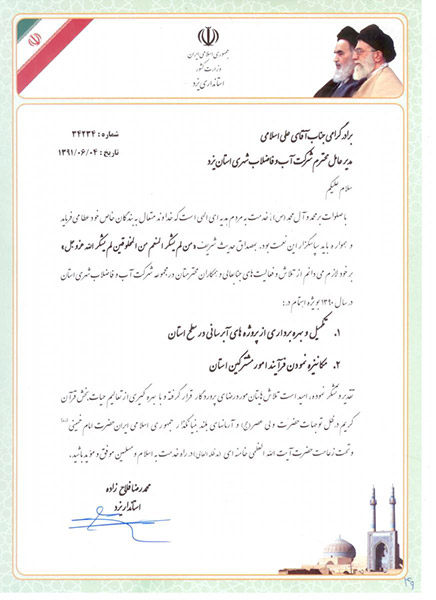 جمهوری اسلامی ایران
وزارت کشور
استانداری یزد
برادر گرامی جناب آقای علی اسلامی
شماره : ۳۴۲۳۴
مدیر عامل محترم شرکت آب و فاضلاب شهری استان یزد
تاریخ : ۱۳۹۱/۰۶/۰۴
سلام علیکم
با صلوات بر محمد و آل محمد (ص)، خدمت به مردم هدیه ای الهی است که خداوند متعال به بندگان خاص خود عطا می فرماید
و همواره باید سپاسگزار این نعمت بود. بمصداق حدیث شریف «من لم یشکر المنعم من المخلوقین لم یشکر الله عزوجل»
بر خود لازم می دانم از تلاش و فعالیت های جنابعالی و همکاران محترمتان در مجموعه شرکت آب و فاضلاب شهری استان
در سال ۱۳۹۰ بویژه اهتمام در:
۱. تکمیل و بهره برداری از پروژه های آبرسانی در سطح استان
۲. مکانیزه نمودن فرآیند امور مشترکین استان
تقدیر و تشکر نموده، امید است تلاش هایتان مورد رضای پروردگار قرار گرفته و با بهره گیری از تعالیم حیات بخش قرآن
کریم در ظل توجهات حضرت ولی عصر(عج) و آرمانهای بلند بنیانگذار جمهوری اسلامی ایران حضرت امام خمینی (ره)
و تحت زعامت حضرت آیت الله العظمی خامنه ای (مد ظله العالی) در راه خدمت به اسلام و مسلمین موفق و موید باشید.
محمدرضا فلاح زاده
استاندار یزد